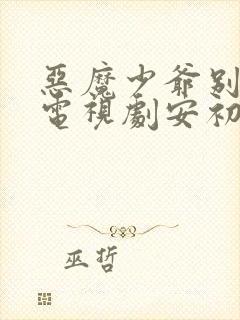 惡魔少爺別
電視劇安初
巫哲